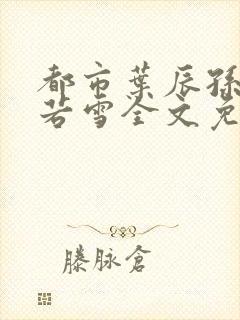 都市葉辰孫
若雪全文免
滕脉倉